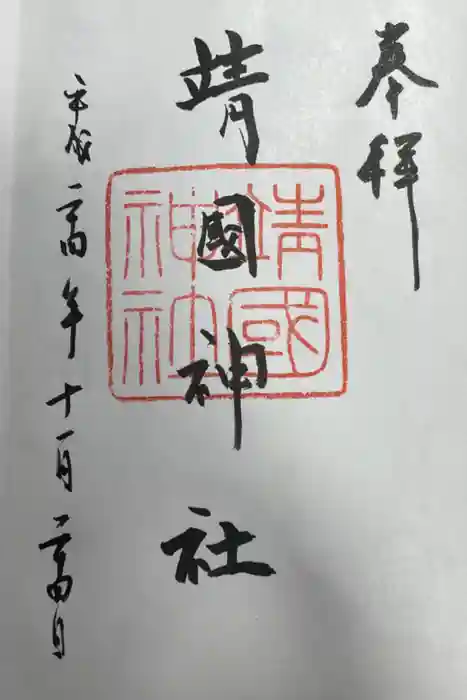 奉拝
靖國神社
靖國神社
平成二十四年十一月二十四日